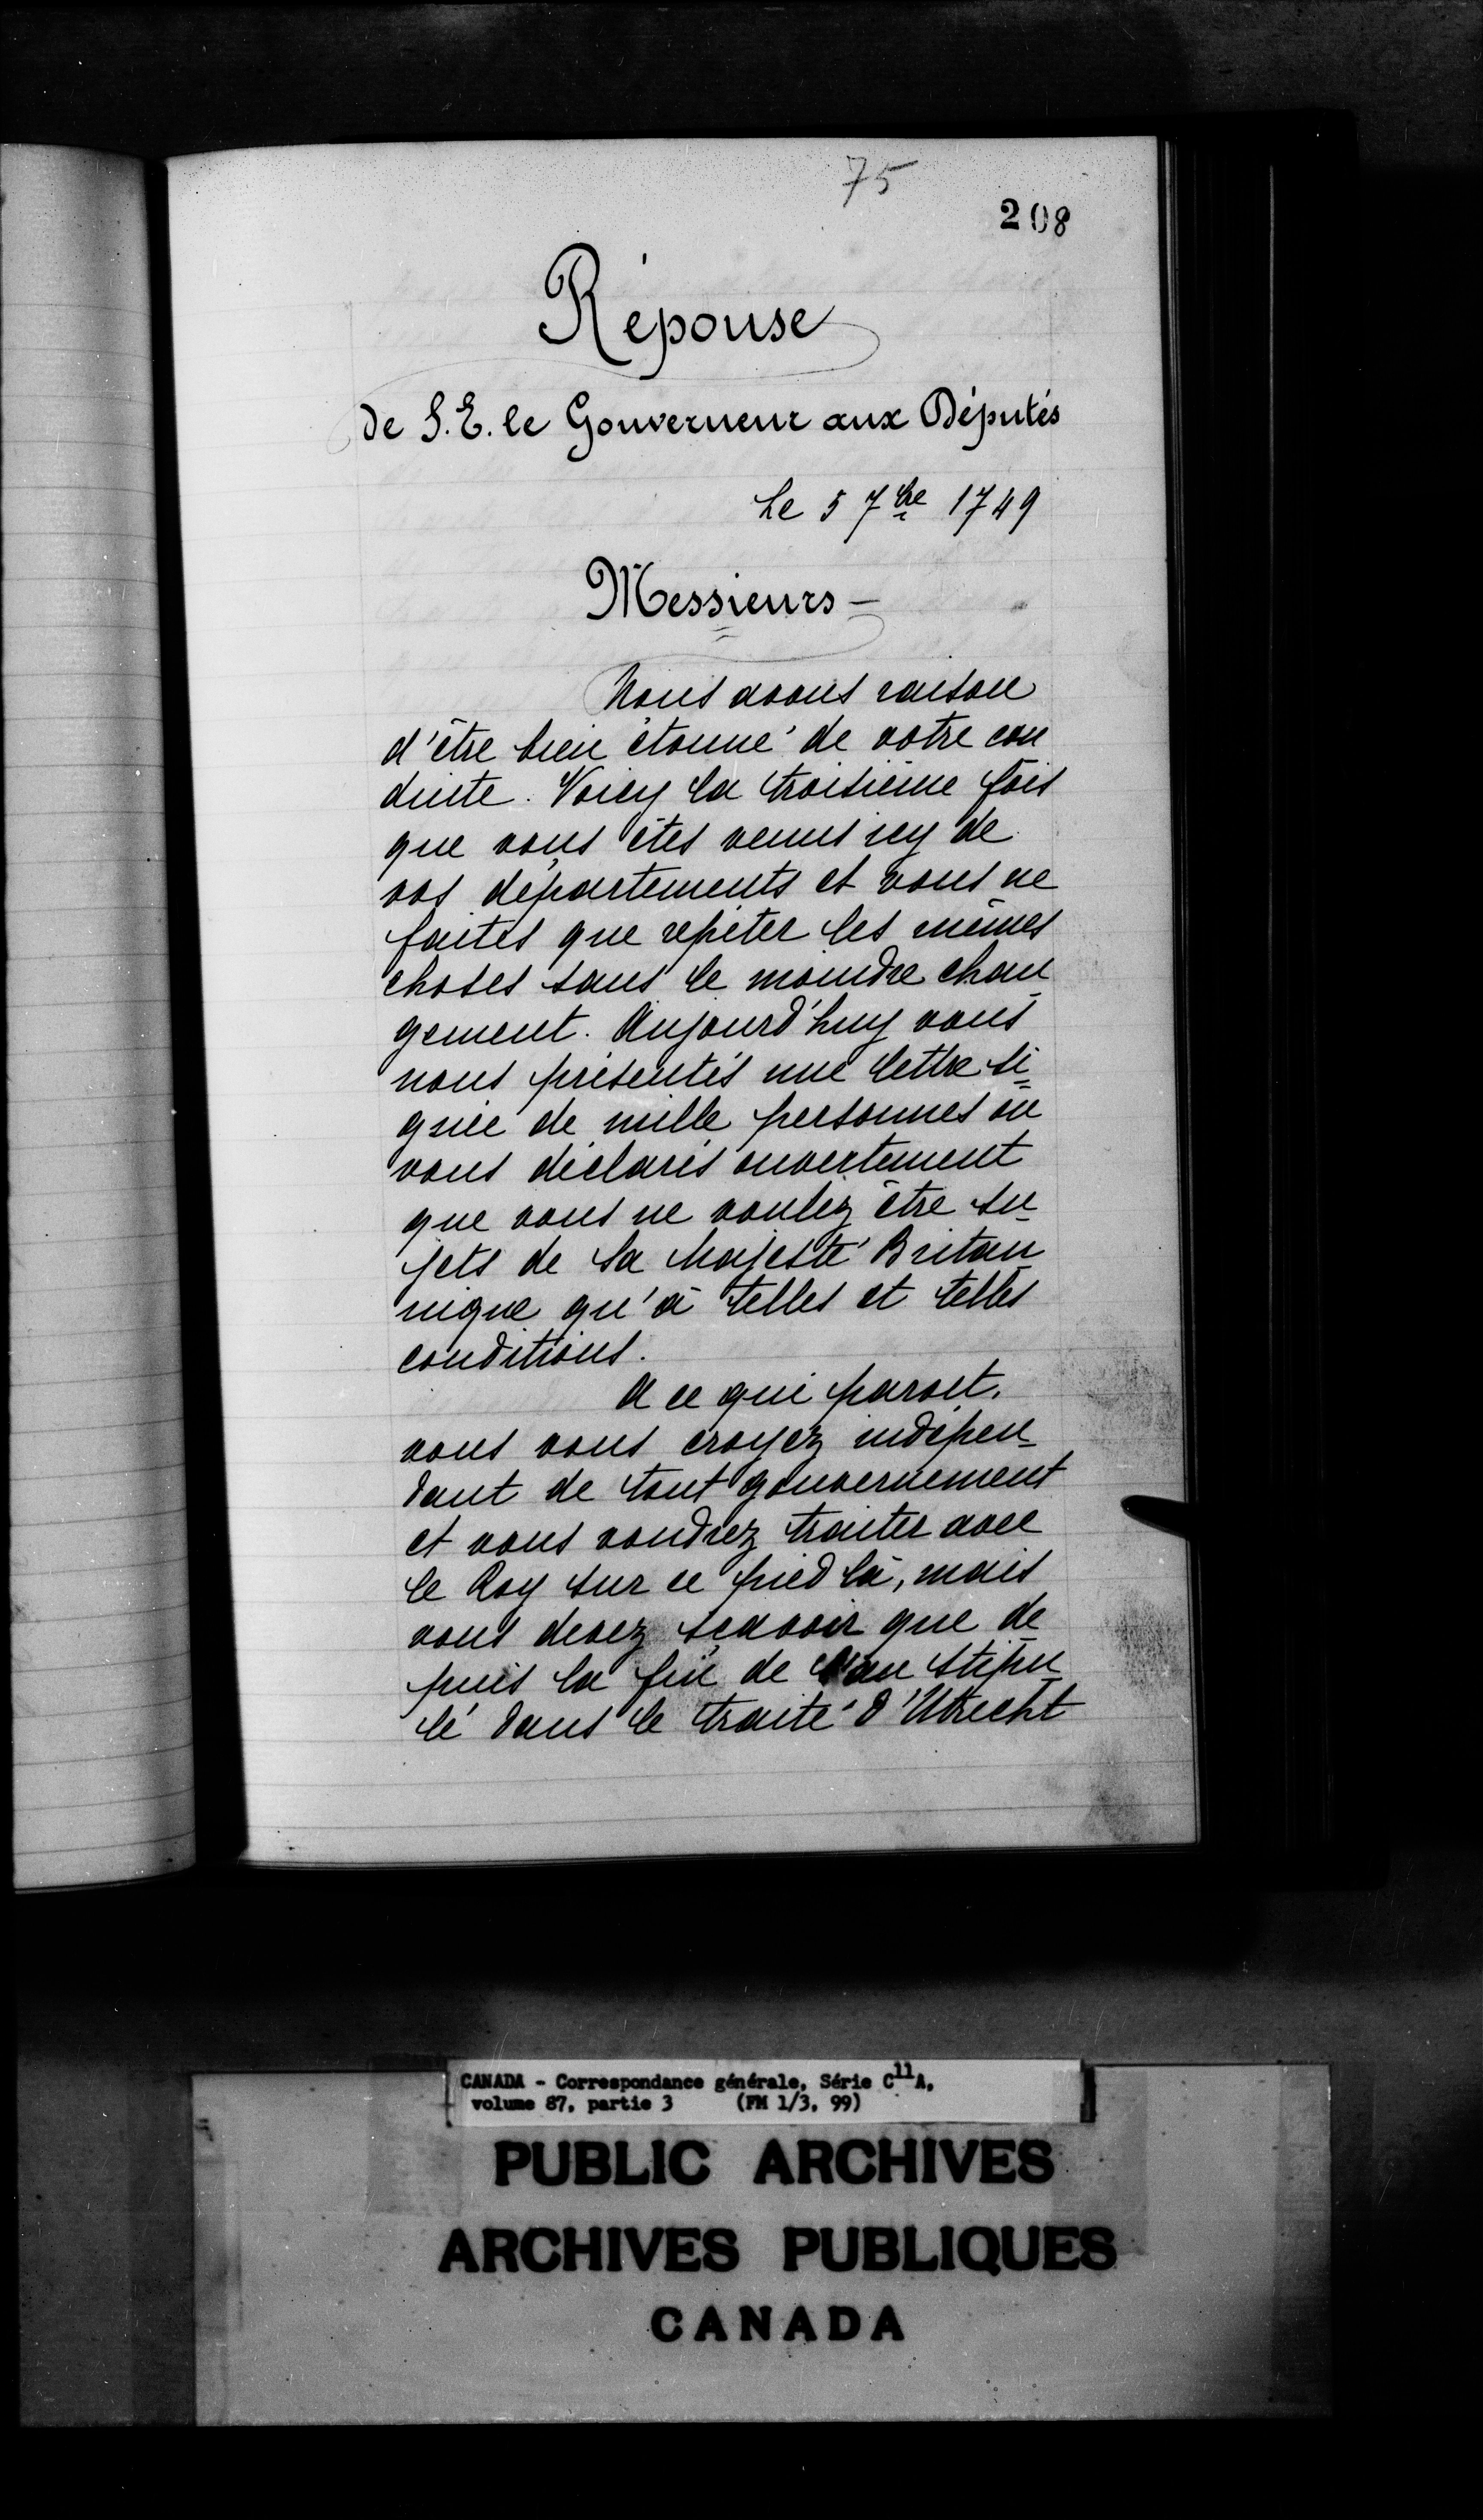 75
208
Réponse
de S. E. le Gouverneur aux Députés
Le 5 7bre 1749
Messieurs -
Nous avons raison
d'être bien étonné de votre con
duite. Voicy la troisième fois
que vous êtes venus icy de
vos départements et vous ne
faites que repéter les mêmes
choses sans le moindre chan
gement. Aujourd'huy vous
nous présentés une lettre si=
gnée de mille personnes où
vous déclarés ouvertement
que vous ne voulez être su-
jets de Sa Majesté Britan
nique qu'à telles et telles
conditions.
A ce qui paroit,
vous vous croyez indépen-
dant de tout gouvernement
et vous voudriez traiter avec
le Roy sur ce pied là, mais
vous devez sçavoir que de
puis la fin de l'an stipu
lé dans le traité d'Utrecht
CANADA - Correspondance générale, Série C11A,
volume 87, partie 3 (FM 1/3, 99)
PUBLIC ARCHIVES
ARCHIVES PUBLIQUES
CANADA